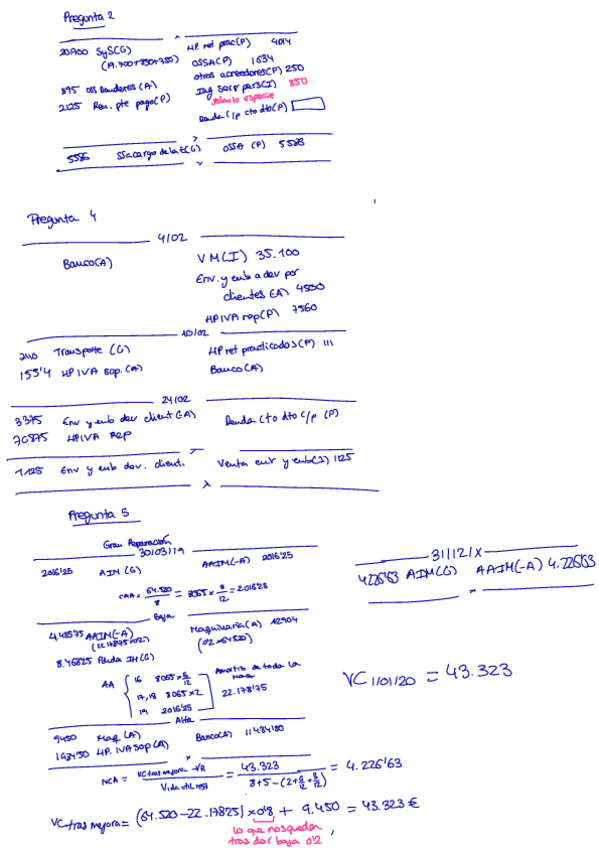 Pregunta 2
20900 SyS(G)
(19.700+850+350)
HP ret prac(P) 4014
OSSA(P) 1634
otros acreedores(P) 250
895 oss deudores (A)
Ing serv pers(I) 850
salario especie
2125 Rem. pte pago(P)
Deuda c/p cto dto(P)
5586 SS a cargo de la E(G) OSSA (P) 5586
Pregunta 4
4/02
Banco(A)
VM(I) 35.100
Env. y emb a dev por
clientes (-A) 4500
HP IVA rep(P) 7560
10/02
740 Transporte (G) HP ret practicados(P) 111
155'4 HP IVA sop. (A) Banco(A)
24/02
3375 Env y emb dev client(-A) Deuda cto dto c/p (P)
708'75 HP IVA Rep
1.125 Env y emb dev. client. Venta env y emb(I) 1125
Pregunta 5
Gran Reparación
30/03/19
2016'25 AIM (G) AAIM(-A) 2016'25
CAA = 64.520 / 8 = 8065 x 3/12 = 2016'25
Baja
4.435'75 AAIM(-A) Maquinaria(A) 12904
(22.178'75x0'2) (0'2 x 64520)
8.468'25 Pérdida IM(G)
AA 16 8065 x 6/12
17,18 8065 x 2
19 2016'25
Amortiz de toda la
maq
22.178'75
Alta
9450 Maq (A) Banco(A) 11434'50
1984'50 HP. IVA sop(A)
NCA = VC tras mejora - VR / Vida útil rest = 43.323 / 8+5-(2+6/12+3/12) = 4.226'63
VC tras mejora = (64.520-22.178'25) x 0'8 + 9.450 = 43.323 €
lo que nos queda
tras dar baja 0'2
31/12/X
4226'63 AIM(G) AAIM(-A) 4.226'63
VC 1/01/20 = 43.323